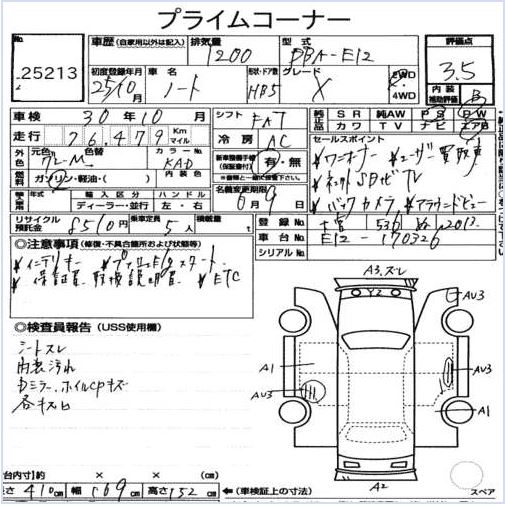 プライムコーナー
No. 25213
車歴 (自家用以外は記入) 排気量 1200 型式 DBA-E12 評価点 3.5
初度登録年月 25/10 車名 ノート 形状・ドア数 HB5 グレード X 2WD 4WD 内装補助評価 B
車検 30年10月 シフト FAT 純正品 SR 純AW PS PW
走行 76,479 Km マイル 冷房 AC 純正品 カワ TV ナビ エアB
外色 元色 カラーNo. KAD 新車整備手帳(保証書付) 有・無 ※書類と一緒に搬送下さい
セールスポイント
ワンオーナー ユーザー買取車
燃料 ガソリン・軽油・( ) 内装色
輸入車 年式 輸入区分 ディーラー・並行 ハンドル 左・右 名義変更期限 6月9日
バックカメラ アラウンドビュー
リサイクル預託金 8510円 乗車定員 5人 積載量 t 登録No. 536 ぬ 2013
車台No. E12-170326
シリアルNo.
◎注意事項 (修復・不具合箇所および状態等)
インテリキー プッシュEgスタート
保証書 取扱説明書 ETC
◎検査員報告 (USS使用欄)
シートスレ
内装汚れ
カミラー、ホイルCPキズ
各キズ凹
A3.ズレ
Y2
AU3
A1
AU3
AU3
A1
A2
スペア
荷台内寸(約 × × (cm)
長さ 410 cm 幅 169 cm 高さ 152 cm ←(車検証上の寸法)